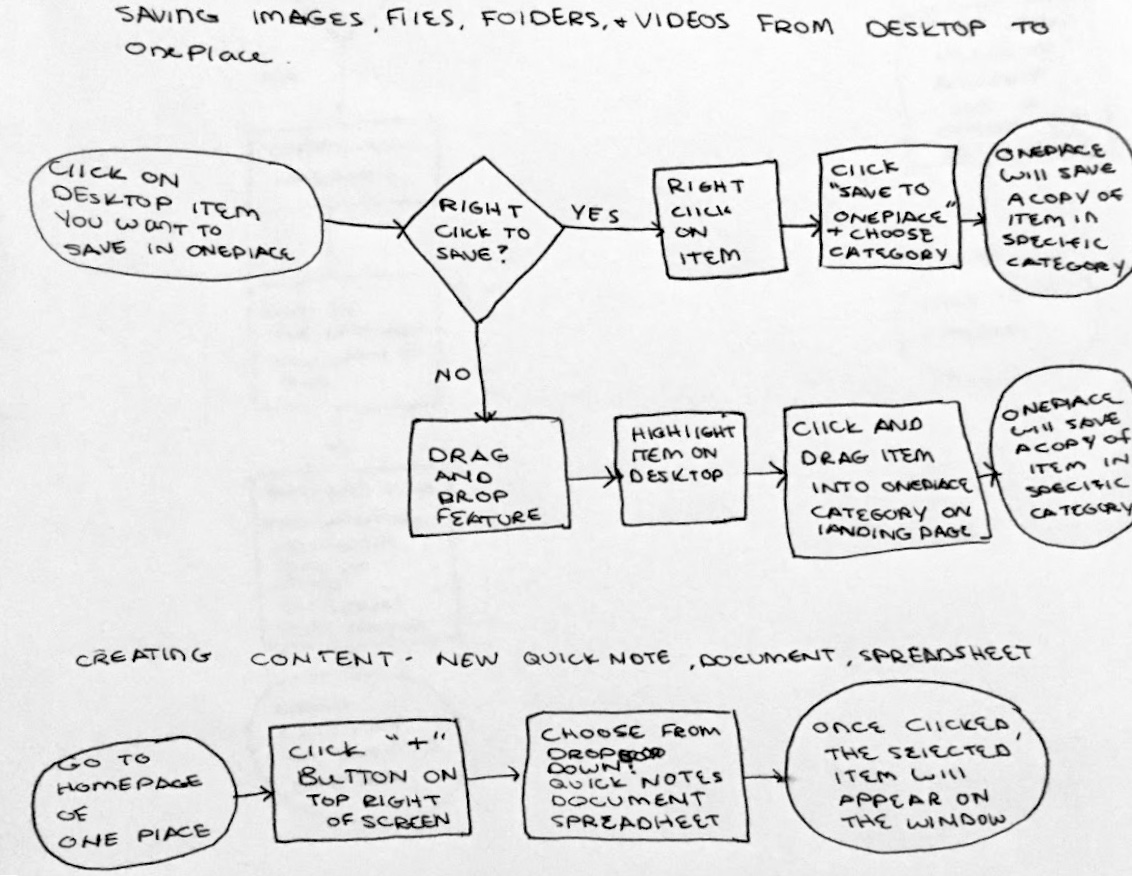 SAVING IMAGES, FILES, FOLDERS, + VIDEOS FROM DESKTOP TO
OnePlace.
CLICK ON
DESKTOP ITEM
YOU WANT TO
SAVE IN ONEPLACE
RIGHT
CLICK TO
SAVE?
YES
RIGHT
CLICK
ON
ITEM
CLICK
"SAVE TO
ONEPLACE"
+ CHOOSE
CATEGORY
ONEPLACE
WILL SAVE
A COPY OF
ITEM IN
SPECIFIC
CATEGORY
NO
DRAG
AND
DROP
FEATURE
HIGHLIGHT
ITEM ON
DESKTOP
CLICK AND
DRAG ITEM
INTO ONEPLACE
CATEGORY ON
LANDING PAGE
ONEPLACE
WILL SAVE
A COPY OF
ITEM IN
SPECIFIC
CATEGORY
CREATING CONTENT - NEW QUICK NOTE, DOCUMENT, SPREADSHEET
GO TO
HOMEPAGE
OF
ONE PLACE
CLICK "+"
BUTTON ON
TOP RIGHT
OF SCREEN
CHOOSE FROM
DROP
DOWN:
QUICK NOTES
DOCUMENT
SPREADHEET
ONCE CLICKED,
THE SELECTED
ITEM WILL
APPEAR ON
THE WINDOW